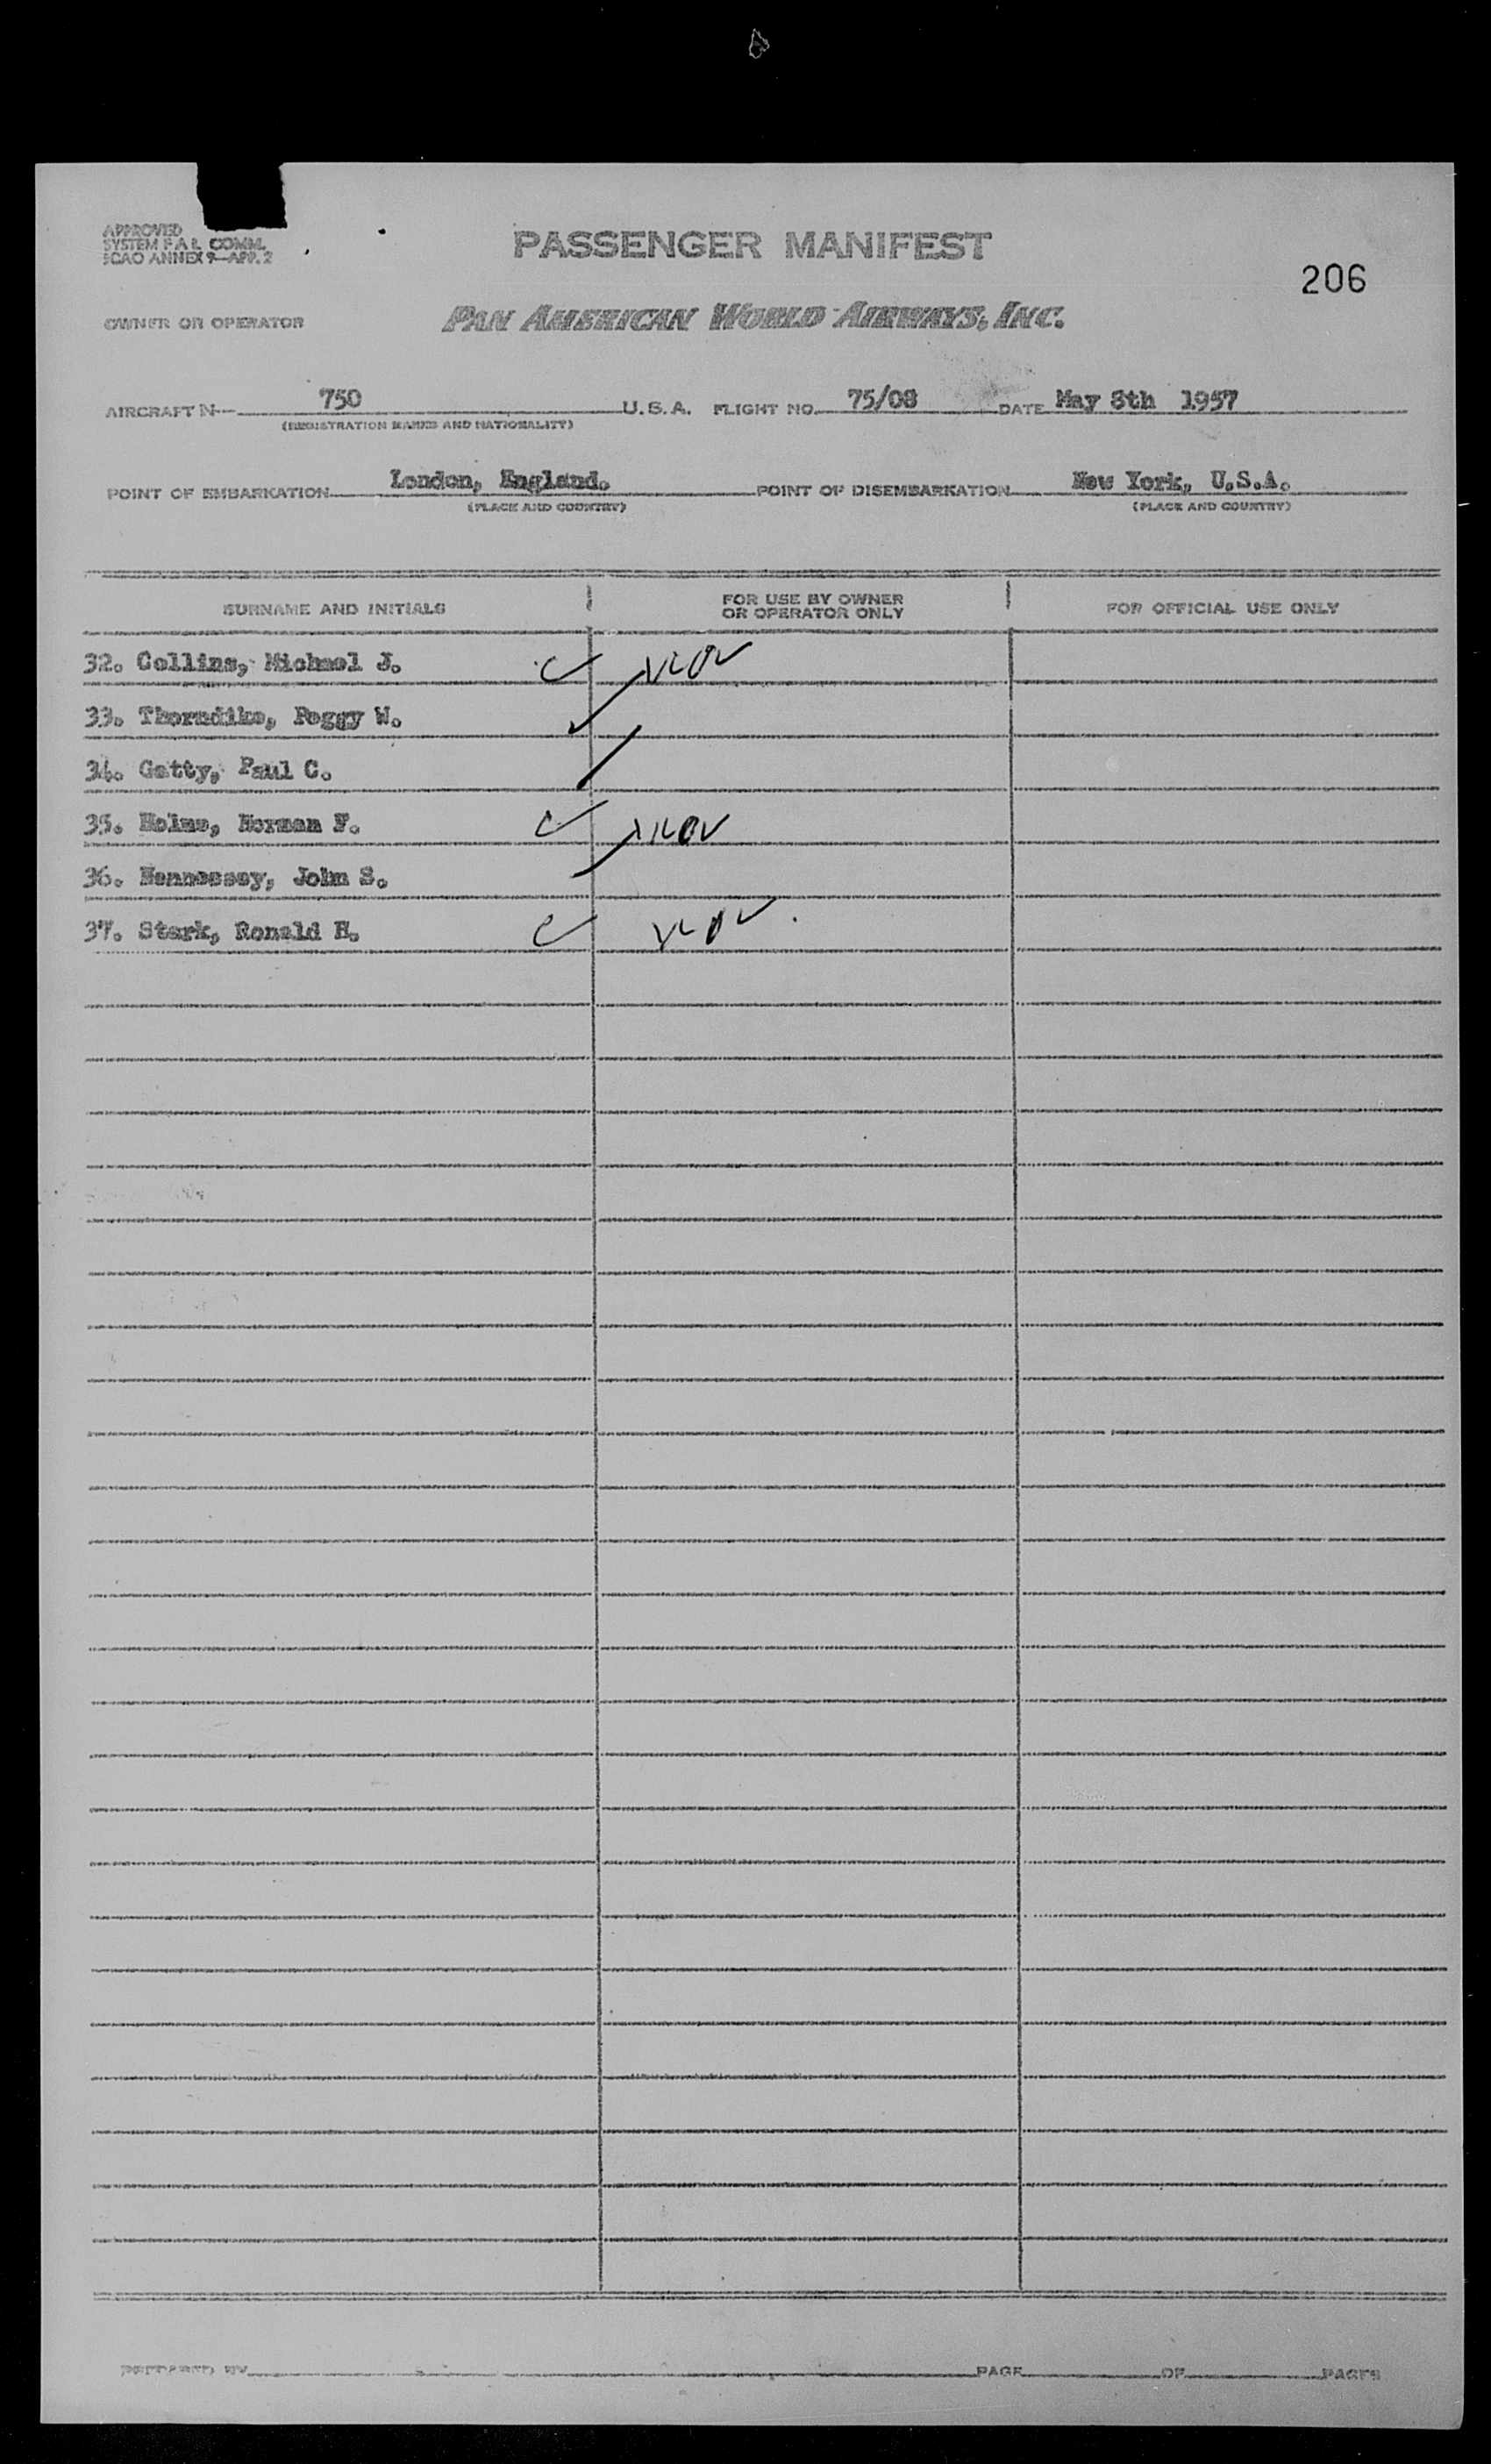 APPROVED
SYSTEM F A L COMM.
ICAO ANNEX 9—APP. 2
PASSENGER MANIFEST
206
OWNER OR OPERATOR PAN AMERICAN WORLD AIRWAYS, INC.
AIRCRAFT N— 750 U.S.A. FLIGHT NO. 75/08 DATE May 8th 1957
(REGISTRATION MARKS AND NATIONALITY)
POINT OF EMBARKATION London, England. POINT OF DISEMBARKATION New York, U.S.A.
(PLACE AND COUNTRY) (PLACE AND COUNTRY)
SURNAME AND INITIALS FOR USE BY OWNER OR OPERATOR ONLY FOR OFFICIAL USE ONLY
32. Collins, Michael J.
33. Thorndike, Peggy W.
34. Getty, Paul C.
35. Holme, Norman F.
36. Hennessey, John S.
37. Stark, Ronald H.
PREPARED BY PAGE OF PAGES